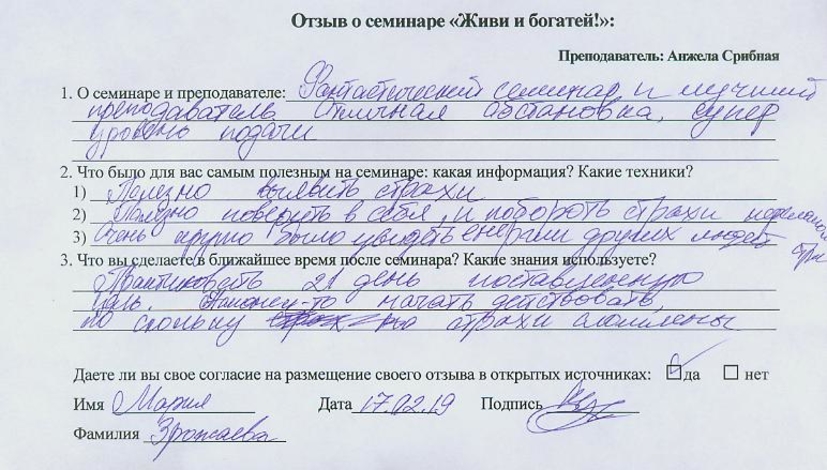 Отзыв о семинаре «Живи и богатей!»:
Преподаватель: Анжела Срибная
1. О семинаре и преподавателе: Фантастический семинар и лучший
преподаватель Отличная обстановка, супер
уровень подачи
2. Что было для вас самым полезным на семинаре: какая информация? Какие техники?
1) Полезно выявить страхи
2) Полезно поверить в себя, и побороть страхи
3) Очень круто было увидеть энергии других людей
3. Что вы сделаете в ближайшее время после семинара? Какие знания используете?
Практиковать 21 день поставленную
цель. Наконец-то начать действовать,
по скольку страхи сломлены
Даете ли вы свое согласие на размещение своего отзыва в открытых источниках: да нет
Имя Мария Дата 17.02.19 Подпись
Фамилия